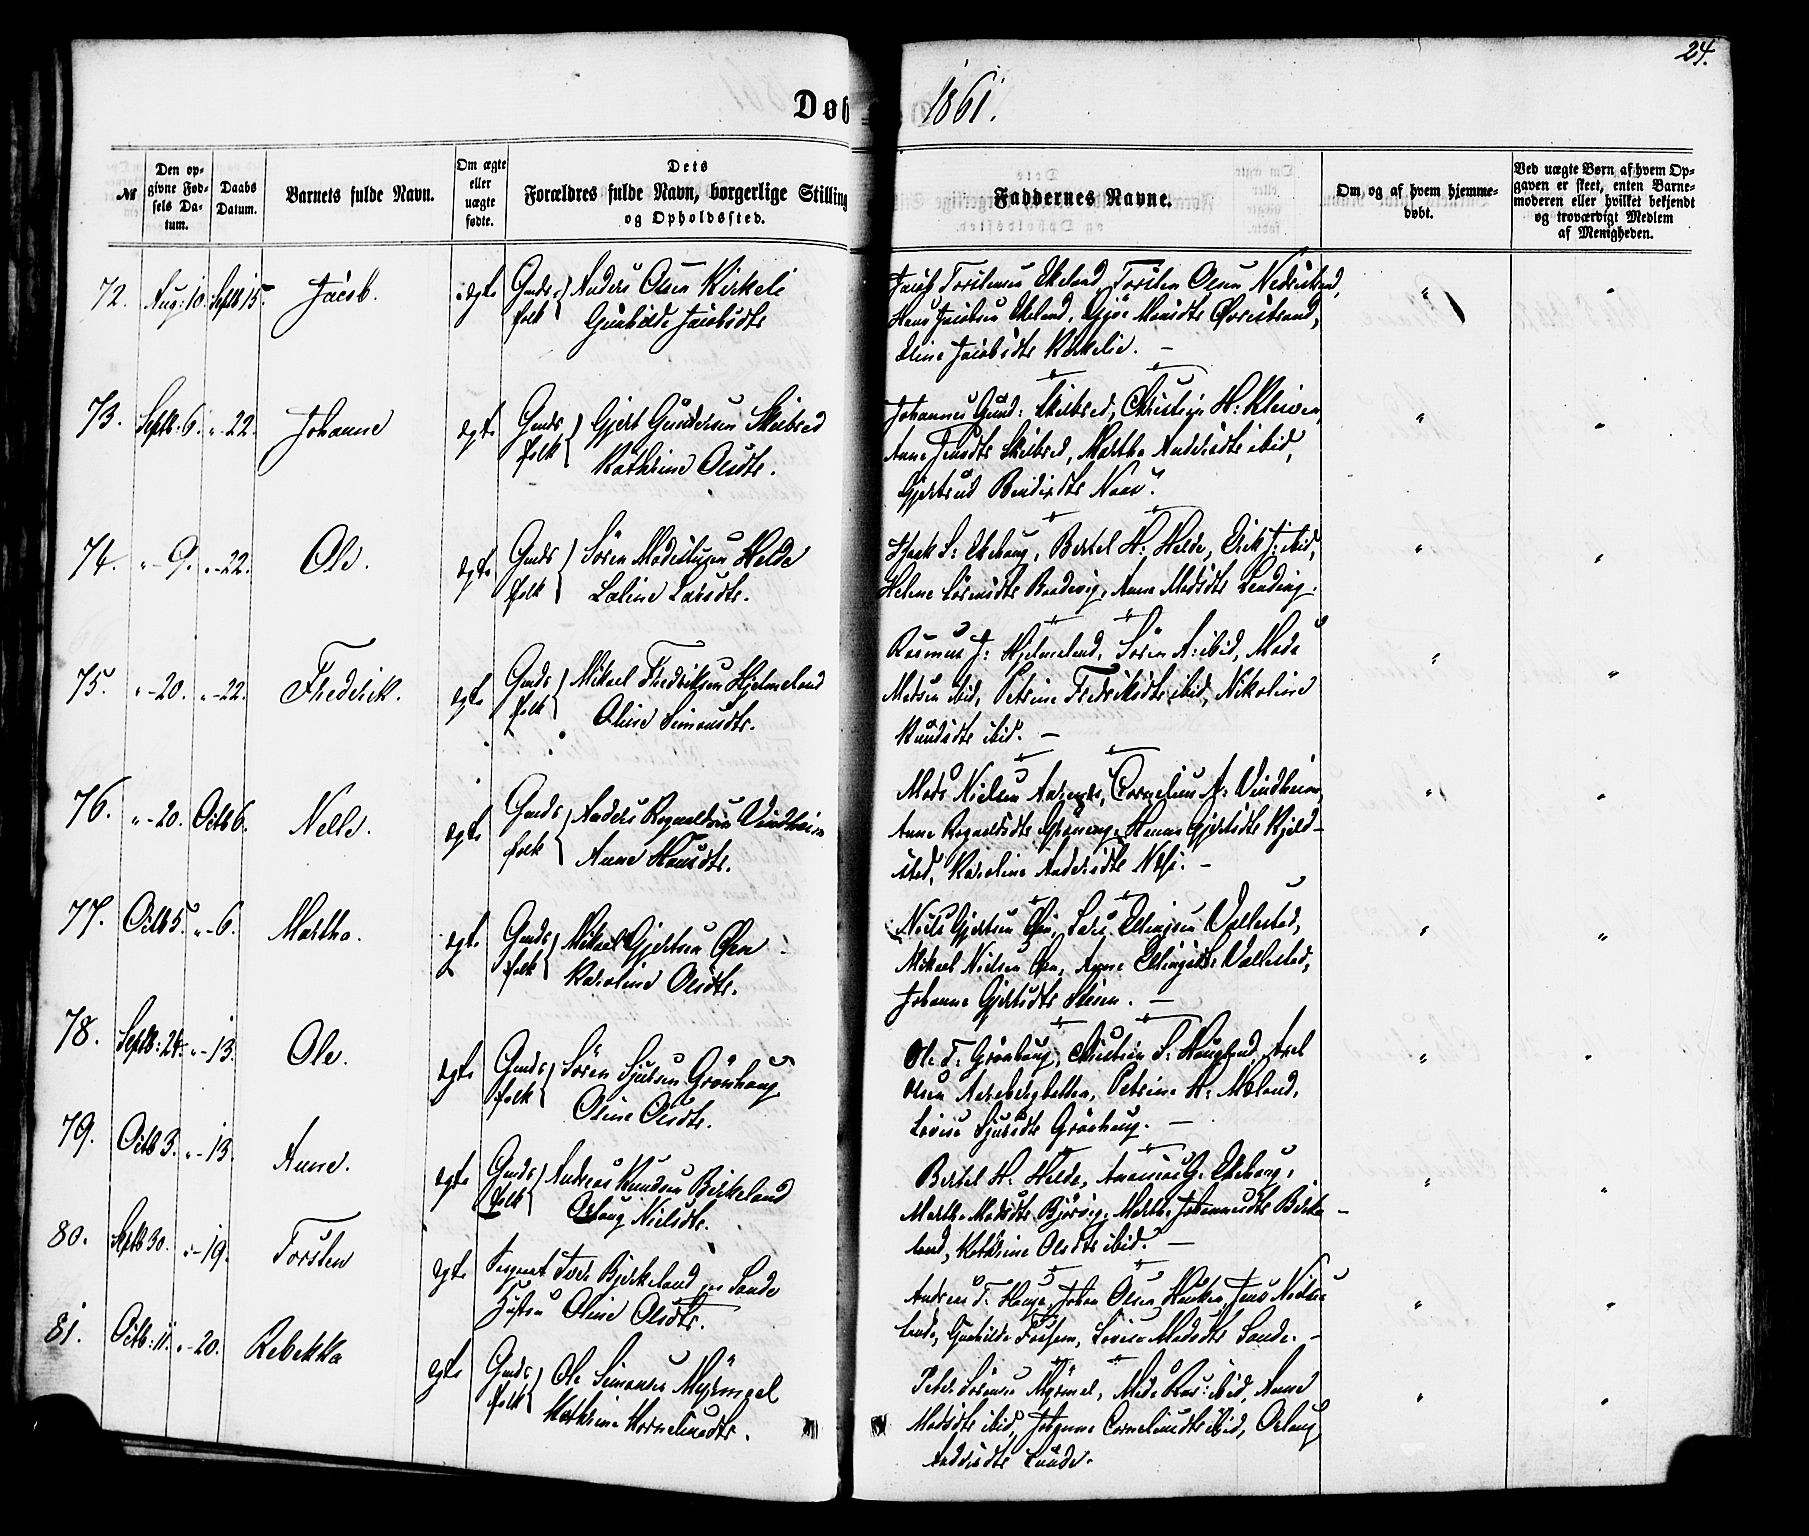 24.
Døb
1861.
№
Den opgivne Fødsels Datum.
Daabs Datum.
Barnets fulde Navn.
Om ægte eller uægte fødte.
Dets Forældres fulde Navn, borgerlige Stilling og Opholdssted.
Faddernes Navne.
Om og af hvem hjemmedøbt.
Ved uægte Børn af hvem Opgaven er skeet, enten Barnemoderen eller hvilket bekjendt og troværdigt Medlem af Menigheden.
72. Aug: 10. Septb 15. Jacob. ægte Gmds folk Anders Olsen Kirkeli
Gunhilde Jacobsdtr
Jacob Torstensen Ekeland, Torsten Olsen
Hans Jacobsen Ekeland,
Oline Jacobsdtr Kirkelie. —
73. Septb. 6. " - 22. Johanne ægte Gmds folk Gjert Gundersen Skibsed
Kathrine Olsdtr.
Johannes Gund: Skilbred, Christian H: Kleiven,
Anne Jensdtr Skilbred, Martha Andersdtr ibid,
Gjertrud Bendixdtr
74. " - 9. " - 22. Ole. ægte Gmds folk Sören Helde
Larsdtr.
Isaak S: Ekehaug, Bertel H: Helde, Erik J: ibid,
Helene Sörensdtr Anne Madsdtr
75. " - 20. " - 22. Frederik. ægte Gmds folk Mikael Fredriksen Hjelmeland
Oline Simonsdtr.
Rasmus J: Hjelmeland, Sören A: ibid, Mads
Madsen ibid, Petrine Fredriksdtr ibid, Nikoline
Knudsdtr ibid. —
76. " - 20. Octb 6. Nelle. ægte Gmds folk Anders Rognaldsen Vindheim
Anne Hansdtr.
Mads Nielsen Cornelius A: Vindheim,
Anne Rognaldsdtr Gjertsdtr Kjeld-
stad, Karoline Andersdtr
77. Octb 5. " - 6. Martha. ægte Gmds folk Mikael Gjertsen Øen
Karoline Olsdtr.
Niels Gjertsen Øen, Lars Ellingsen Vallestad,
Mikael Nielsen Øen, Anne Ellingsdtr Vallestad,
Johanne Gjertsdtr Steien. —
78. Septb: 24. " - 13. Ole. ægte Gmds folk Sören Sjursen Grönhaug
Oline Olsdtr.
Ole T: Grönhaug, Christian S: Haugland, Axel
Olsen Petrine H: Moland,
Lovise Sjursdtr Grönhaug. —
79. Octb 3. " - 13. Anne. ægte Gmds folk Andreas Knudsen Birkeland
Oslaug Nielsdtr.
Bertel H: Helde, Ananias G: Ekehaug,
Martha Madsdtr Martha Johannesdtr Birke-
land, Kathrine Olsdtr ibid. —
80. Septb 30. " - 19. Torsten ægte Iver Bjerkeland pr Sande
Hustru Oline Olsdtr.
Andreas T: Johan Olsen Jens Nielsen
Sande, Gunhilde Lovise Madsdtr Sande. —
81. Octb: 11. " - 20. Rebekka ægte Gmds folk Ole Simonsen Myrmel
Kathrine Korneliusdtr.
Peder Sörensen Myrmel, Mads Ras: ibid, Anne
Madsdtr ibid, Johanne Corneliusdtr ibid, Oslaug
Andersdtr Lunde.